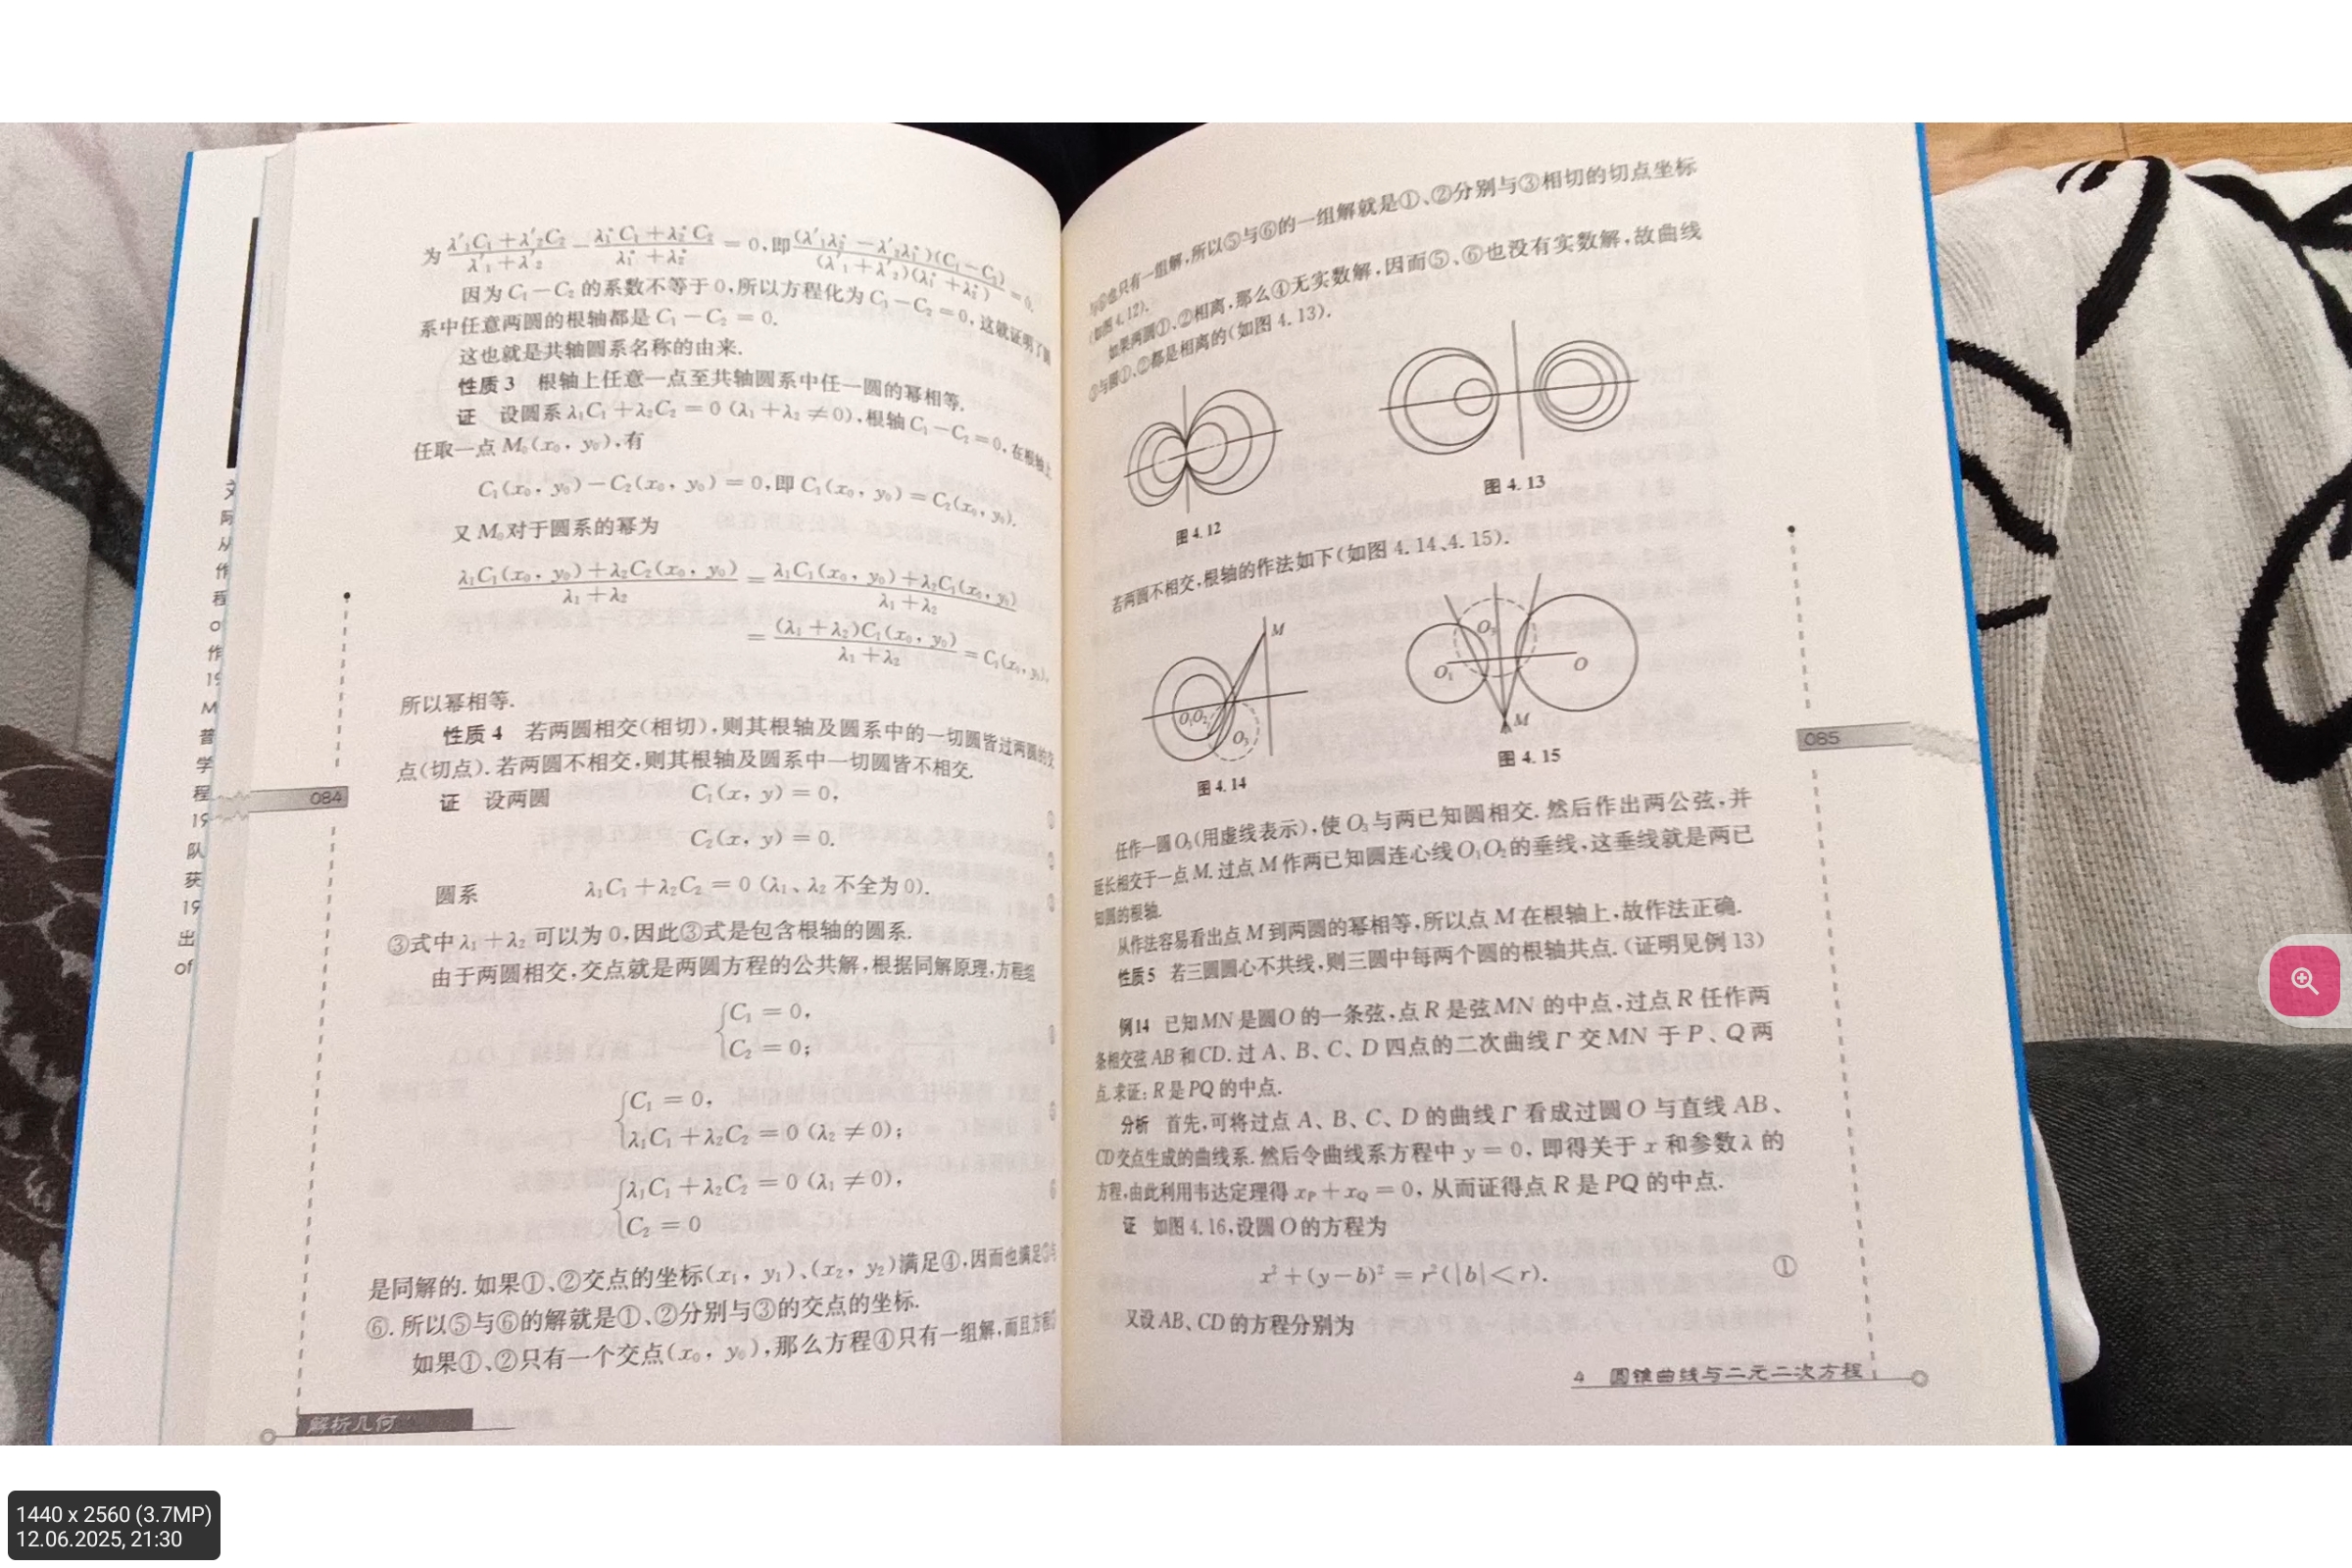 为 λ′₁C₁+λ′₂C₂/λ′₁+λ′₂ − λ₁″C₁+λ₂″C₂/λ₁″+λ₂″ = 0,即 (λ′₁λ₂″−λ′₂λ₁″)(C₁−C₂)/(λ′₁+λ′₂)(λ₁″+λ₂″) = 0.
因为 C₁−C₂ 的系数不等于 0,所以方程化为 C₁−C₂ = 0, 这就证明了
系中任意两圆的根轴都是 C₁−C₂ = 0.
这也就是共轴圆系名称的由来.
性质 3 根轴上任意一点至共轴圆系中任一圆的幂相等.
证 设圆系 λ₁C₁+λ₂C₂ = 0 (λ₁+λ₂≠0),根轴 C₁−C₂ = 0, 在根轴上
任取一点 M₀(x₀, y₀),有
C₁(x₀, y₀)−C₂(x₀, y₀) = 0,即 C₁(x₀, y₀) = C₂(x₀, y₀).
又 M₀ 对于圆系的幂为
λ₁C₁(x₀, y₀)+λ₂C₂(x₀, y₀)/λ₁+λ₂ = λ₁C₁(x₀, y₀)+λ₂C₁(x₀, y₀)/λ₁+λ₂
= (λ₁+λ₂)C₁(x₀, y₀)/λ₁+λ₂ = C₁(x₀, y₀),
所以幂相等.
性质 4 若两圆相交(相切),则其根轴及圆系中的一切圆皆过两圆的交
点(切点).若两圆不相交,则其根轴及圆系中一切圆皆不相交.
证 设两圆 C₁(x, y) = 0,
C₂(x, y) = 0.
圆系 λ₁C₁+λ₂C₂ = 0 (λ₁、λ₂ 不全为 0).
③式中 λ₁+λ₂ 可以为 0,因此③式是包含根轴的圆系.
由于两圆相交,交点就是两圆方程的公共解,根据同解原理,方程组
{C₁ = 0,
C₂ = 0;
{C₁ = 0,
λ₁C₁+λ₂C₂ = 0 (λ₂≠0);
{λ₁C₁+λ₂C₂ = 0 (λ₁≠0),
C₂ = 0
是同解的. 如果①、②交点的坐标(x₁, y₁)、(x₂, y₂)满足④,因而也满足⑤与
⑥. 所以⑤与⑥的解就是①、②分别与③的交点的坐标.
如果①、②只有一个交点(x₀, y₀),那么方程④只有一组解,而且方程⑤
084
解析几何
从
作
程
作
19
M
普
学
程
19
队
获
19
出
of
与⑥也只有一组解,所以⑤与⑥的一组解就是①、②分别与③相切的切点坐标
(如图 4.12).
如果两圆①、②相离,那么④无实数解,因而⑤、⑥也没有实数解,故曲线
③与圆①、②都是相离的(如图 4.13).
图 4.12
图 4.13
若两圆不相交,根轴的作法如下(如图 4.14、4.15).
M
O₁O₂
O₃
图 4.14
O₃
O₁
O
M
图 4.15
任作一圆 O₃(用虚线表示),使 O₃ 与两已知圆相交. 然后作出两公弦,并
延长相交于一点 M. 过点 M 作两已知圆连心线 O₁O₂ 的垂线,这垂线就是两已
知圆的根轴.
从作法容易看出点 M 到两圆的幂相等,所以点 M 在根轴上,故作法正确.
性质 5 若三圆圆心不共线,则三圆中每两个圆的根轴共点. (证明见例 13)
例14 已知 MN 是圆 O 的一条弦,点 R 是弦 MN 的中点,过点 R 任作两
条相交弦 AB 和 CD. 过 A、B、C、D 四点的二次曲线 Γ 交 MN 于 P、Q 两
点.求证: R 是 PQ 的中点.
分析 首先,可将过点 A、B、C、D 的曲线 Γ 看成过圆 O 与直线 AB、
CD 交点生成的曲线系. 然后令曲线系方程中 y = 0, 即得关于 x 和参数 λ 的
方程,由此利用韦达定理得 xP+xQ = 0, 从而证得点 R 是 PQ 的中点.
证 如图 4.16,设圆 O 的方程为
x²+(y−b)² = r²(|b|<r). ①
又设 AB、CD 的方程分别为
085
4 圆锥曲线与二元二次方程
1440 x 2560 (3.7MP)
12.06.2025, 21:30